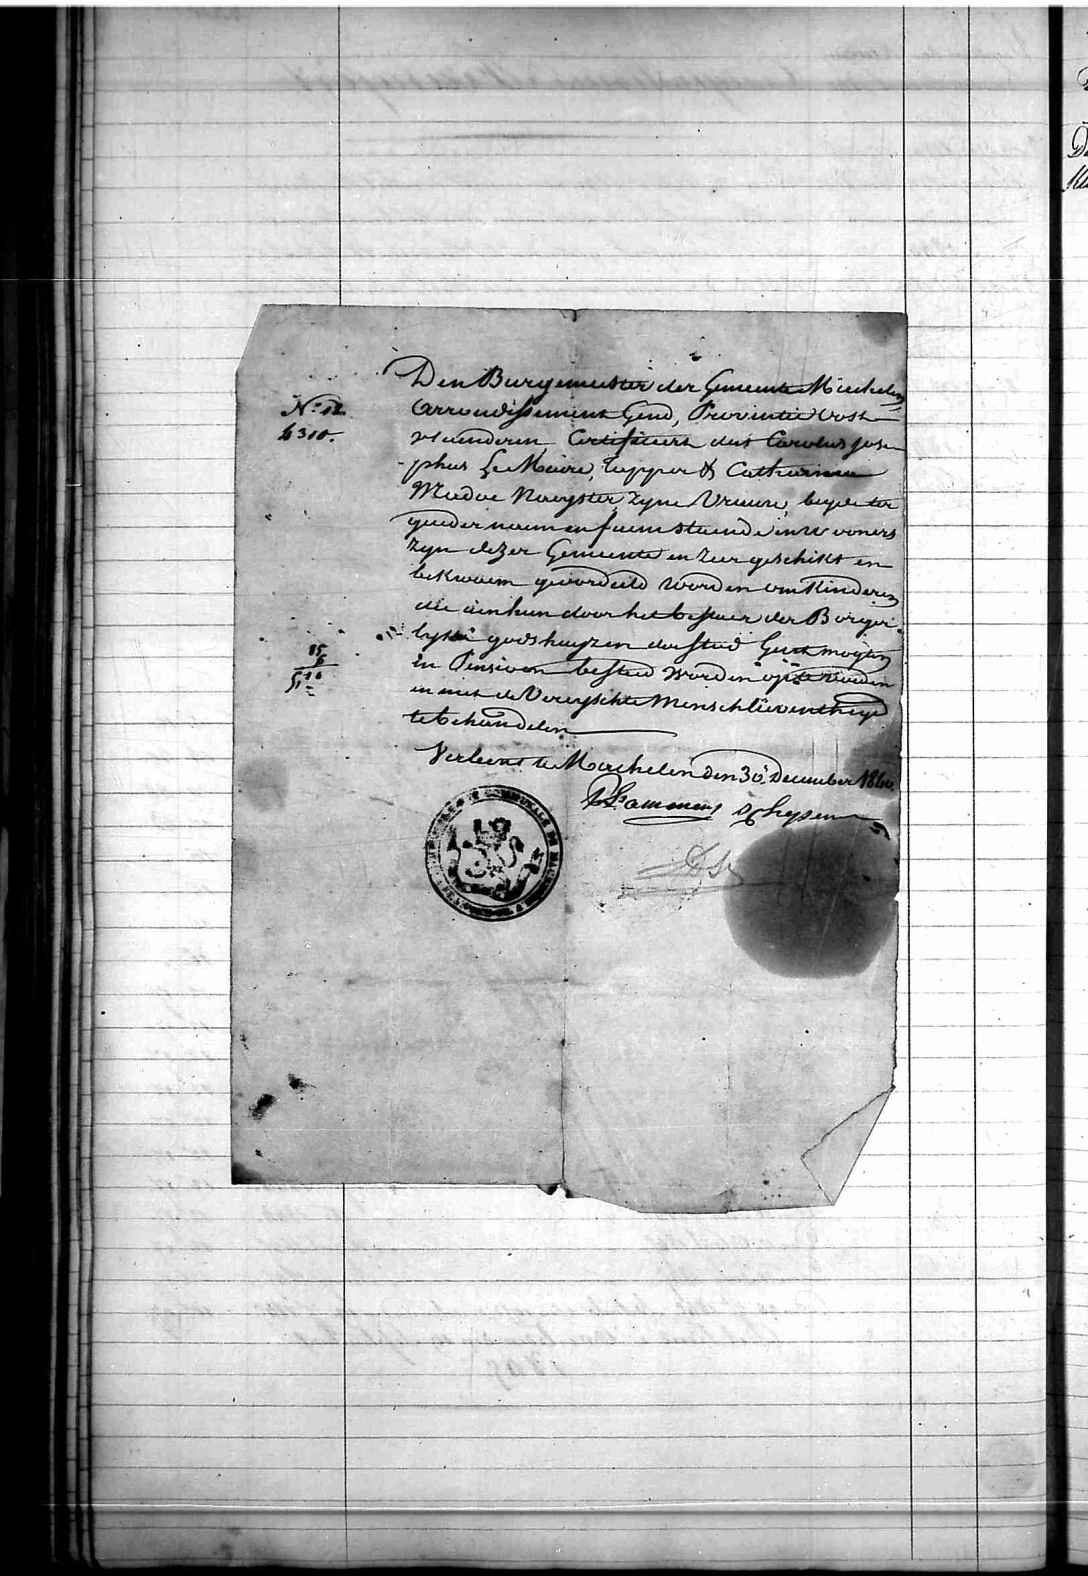 Den Burgemeester der Gemeente Machelen
N: 12. arrondissement Gend, Provintie Oost
4310. vlaenderen Certifieert dat Carolus Jose
phus Le Maire, tapper & Catharina
zyne Vrauw, beyde ter
goeder naem en faem staende inwooners
zyn dezer Gemeente en zeer geschikt en
bekwaem geoordeeld worden om kinderen
die aen hun door het bestuer der Borger
lyke godshuyzen der stad Gent mogten
in Pensioen besteed worden op te voeden
en met de Vereyschte Menschlieventheyd
te behandelen
Verleent te Machelen den 30. December 1860
15
6